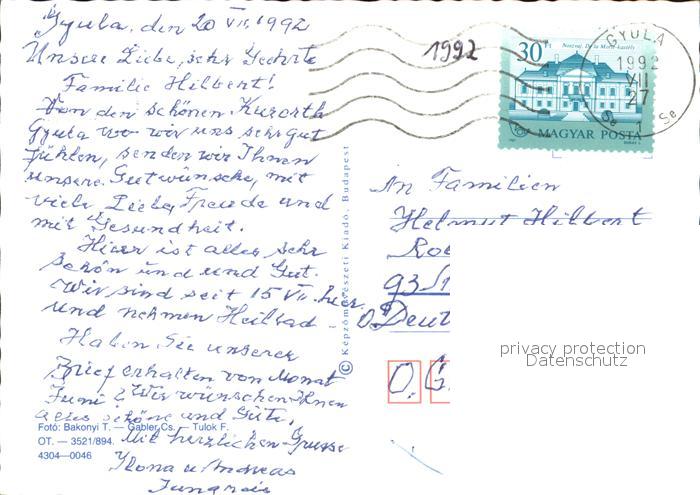 Gyula, den 20 VII, 1992
Unsere Liebe, sehr Geehrte
Familie Hilbert!
Von den schönen Kurorth
Gyula wo wir uns sehr gut
fühlen, senden wir Ihnen
unsere Gutwünsche, mit
viele Liebe, Freude und
mit Gesundheit.
Hier ist alles sehr
schön und und Gut.
Wir sind seit 15 VII. hier
und nehmen Heilbad.
Haben Sie unserer
Brief erhalten von Monat
Juni? Wir wünschen Ihnen
alles schöne und Gute,
Mit herzlichen Grusse
Ilona u. Andreas
Fotó: Bakonyi T. — Gabler Cs. — Tulok F.
OT. — 3521/894.
4304—0046
© Képzőművészeti Kiadó, Budapest
1992
30 Ft
MAGYAR POSTA
GYULA
1992
VII
27
1
An Familien
Helmut Hilbert
privacy protection
Datenschutz